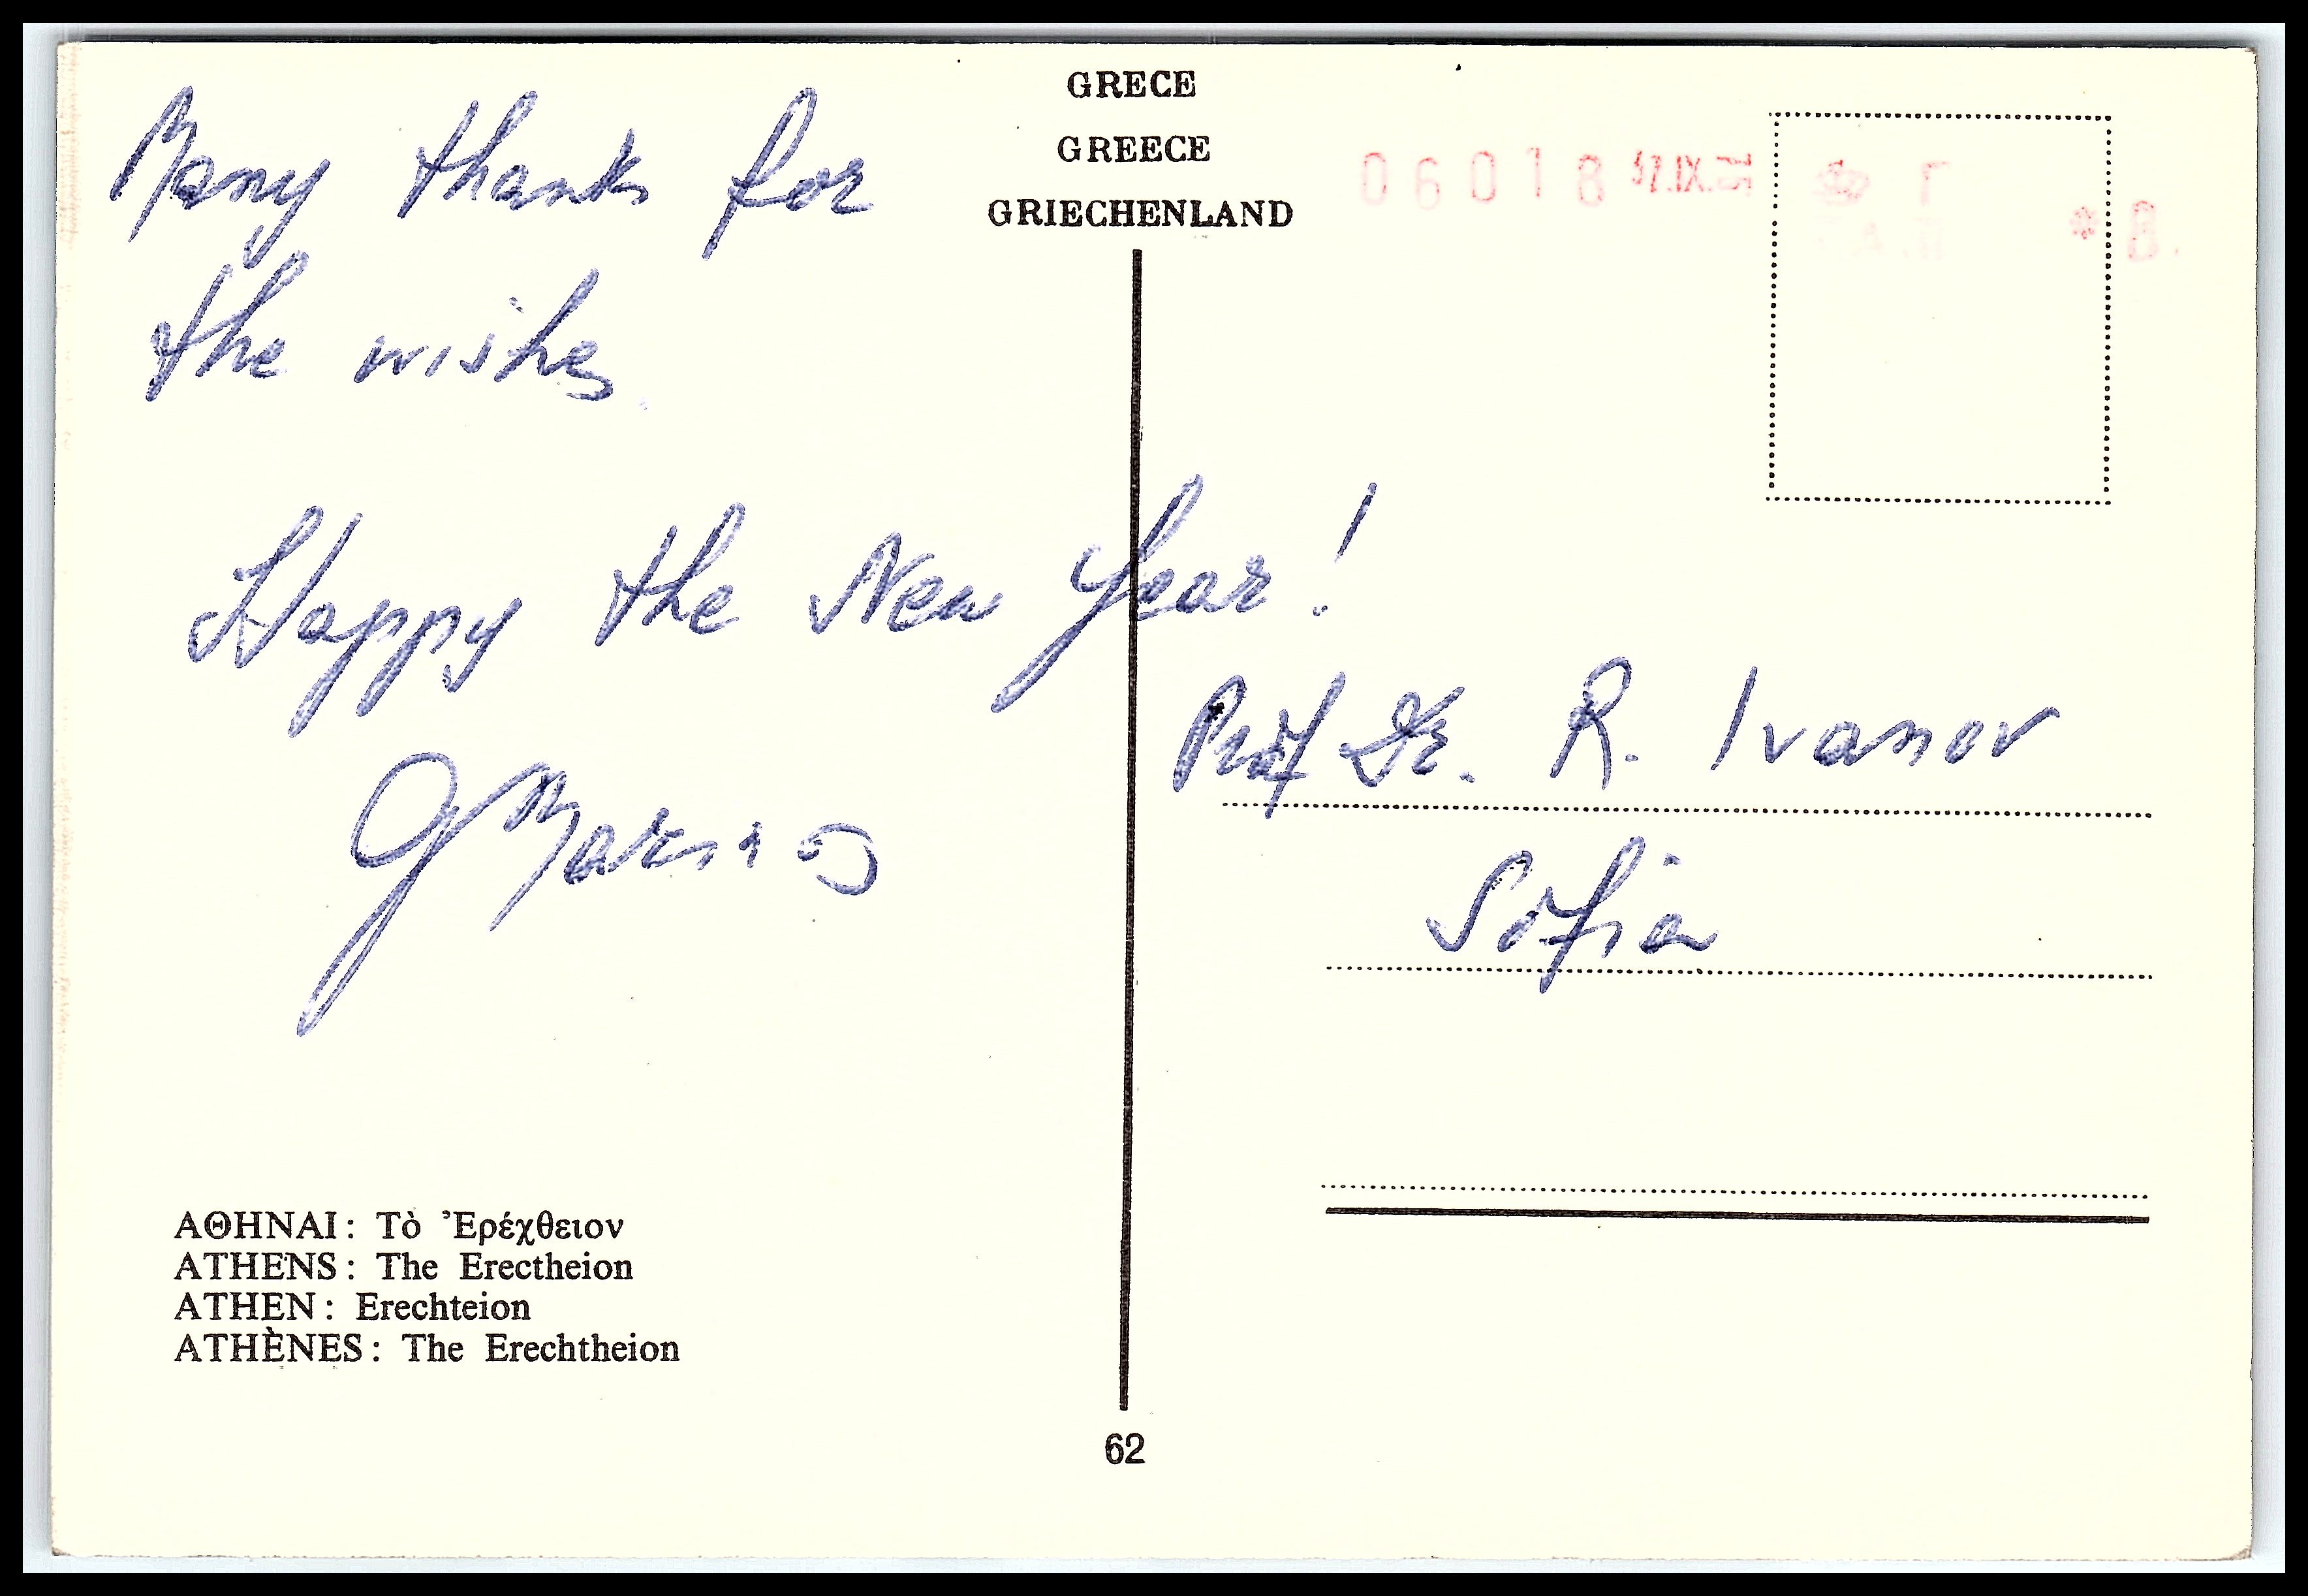 GRECE
GREECE
GRIECHENLAND
Many thanks for
the wishes
Happy the New Year!
06018
Prof Dr. R. Ivanov
Sofia
ΑΘΗΝΑΙ: Τὸ Ἐρέχθειον
ATHENS: The Erectheion
ATHEN: Erechteion
ATHÈNES: The Erechtheion
62